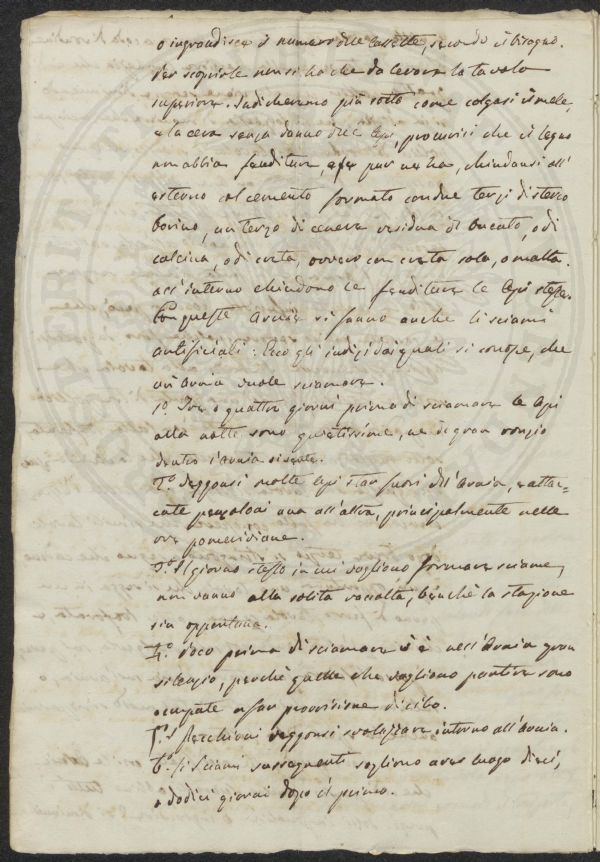 o ingrandisce il numero delle Cassette, secondo il bisogno.
Per scoprirle non si ha che da levare la tavola
superiore. Indicheremo più sotto come colgasi il mele,
e la cera senza danno delle Api, procurisi che il legno
non abbia fenditure, e se pur ne ha, chiudansi all'
esterno col cemento formato con due terzi di sterco
bovino, un terzo di cenere residua di bucato, o di
calcina, o di creta, ovvero con creta sola, o malta.
all'interno chiudono le fenditure le Api stesse.
Con queste Arnie si fanno anche li sciami
artificiali: Ecco gli indizj dai quali si conosce, che
un'Arnia vuole sciamare.
1.o Tre o quattro giorni prima di sciamare le Api
alla notte sono quietissime, ne di gran ronzio
dentro l'arnia si sente.
2.o Veggonsi molte Api star fuori dell'Arnia, e attac-
cate penzoloni una all'altra, principalmente nelle
ore pomeridiane.
3.o Il giorno stesso in cui vogliono formare sciame,
non vanno alla solita raccolta, benchè la stagione
sia opportuna.
4.o Poco prima di sciamare v'è nell'Arnia gran
silenzio, perchè quelle che vogliono partire sono
occupate a far provvisione di cibo.
5.o I Pecchioni veggonsi svolazzare intorno all'Arnia.
6.o Li Sciami susseguenti sogliono aver luogo dieci,
o dodici giorni dopo il primo.